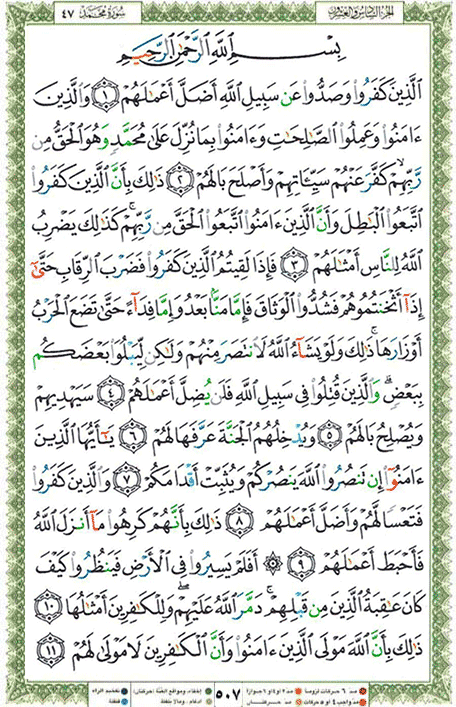 سورة محمد ٤٧
الجزء السادس والعشرون
بِسْمِ ٱللَّهِ ٱلرَّحْمَٰنِ ٱلرَّحِيمِ
ٱلَّذِينَ كَفَرُوا۟ وَصَدُّوا۟ عَن سَبِيلِ ٱللَّهِ أَضَلَّ أَعْمَٰلَهُمْ ١ وَٱلَّذِينَ
ءَامَنُوا۟ وَعَمِلُوا۟ ٱلصَّٰلِحَٰتِ وَءَامَنُوا۟ بِمَا نُزِّلَ عَلَىٰ مُحَمَّدٍ وَهُوَ ٱلْحَقُّ مِن
رَّبِّهِمْ ۙ كَفَّرَ عَنْهُمْ سَيِّـَٔاتِهِمْ وَأَصْلَحَ بَالَهُمْ ٢ ذَٰلِكَ بِأَنَّ ٱلَّذِينَ كَفَرُوا۟
ٱتَّبَعُوا۟ ٱلْبَٰطِلَ وَأَنَّ ٱلَّذِينَ ءَامَنُوا۟ ٱتَّبَعُوا۟ ٱلْحَقَّ مِن رَّبِّهِمْ ۚ كَذَٰلِكَ يَضْرِبُ
ٱللَّهُ لِلنَّاسِ أَمْثَٰلَهُمْ ٣ فَإِذَا لَقِيتُمُ ٱلَّذِينَ كَفَرُوا۟ فَضَرْبَ ٱلرِّقَابِ حَتَّىٰٓ
إِذَآ أَثْخَنتُمُوهُمْ فَشُدُّوا۟ ٱلْوَثَاقَ فَإِمَّا مَنًّۢا بَعْدُ وَإِمَّا فِدَآءً حَتَّىٰ تَضَعَ ٱلْحَرْبُ
أَوْزَارَهَا ۚ ذَٰلِكَ وَلَوْ يَشَآءُ ٱللَّهُ لَٱنتَصَرَ مِنْهُمْ وَلَٰكِن لِّيَبْلُوَا۟ بَعْضَكُم
بِبَعْضٍ ۗ وَٱلَّذِينَ قُتِلُوا۟ فِى سَبِيلِ ٱللَّهِ فَلَن يُضِلَّ أَعْمَٰلَهُمْ ٤ سَيَهْدِيهِمْ
وَيُصْلِحُ بَالَهُمْ ٥ وَيُدْخِلُهُمُ ٱلْجَنَّةَ عَرَّفَهَا لَهُمْ ٦ يَٰٓأَيُّهَا ٱلَّذِينَ
ءَامَنُوٓا۟ إِن تَنصُرُوا۟ ٱللَّهَ يَنصُرْكُمْ وَيُثَبِّتْ أَقْدَامَكُمْ ٧ وَٱلَّذِينَ كَفَرُوا۟
فَتَعْسًا لَّهُمْ وَأَضَلَّ أَعْمَٰلَهُمْ ٨ ذَٰلِكَ بِأَنَّهُمْ كَرِهُوا۟ مَآ أَنزَلَ ٱللَّهُ
فَأَحْبَطَ أَعْمَٰلَهُمْ ٩ ۞ أَفَلَمْ يَسِيرُوا۟ فِى ٱلْأَرْضِ فَيَنظُرُوا۟ كَيْفَ
كَانَ عَٰقِبَةُ ٱلَّذِينَ مِن قَبْلِهِمْ ۚ دَمَّرَ ٱللَّهُ عَلَيْهِمْ ۖ وَلِلْكَٰفِرِينَ أَمْثَٰلُهَا ١٠
ذَٰلِكَ بِأَنَّ ٱللَّهَ مَوْلَى ٱلَّذِينَ ءَامَنُوا۟ وَأَنَّ ٱلْكَٰفِرِينَ لَا مَوْلَىٰ لَهُمْ ١١
٥٠٧